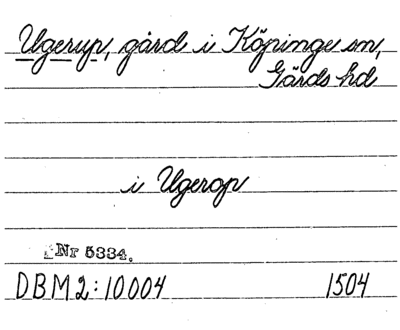 Ugerup, gård i Köpinge sn,
Gärds hd
i Ugerop
Nr 5334.
DBM 2:10004 1504